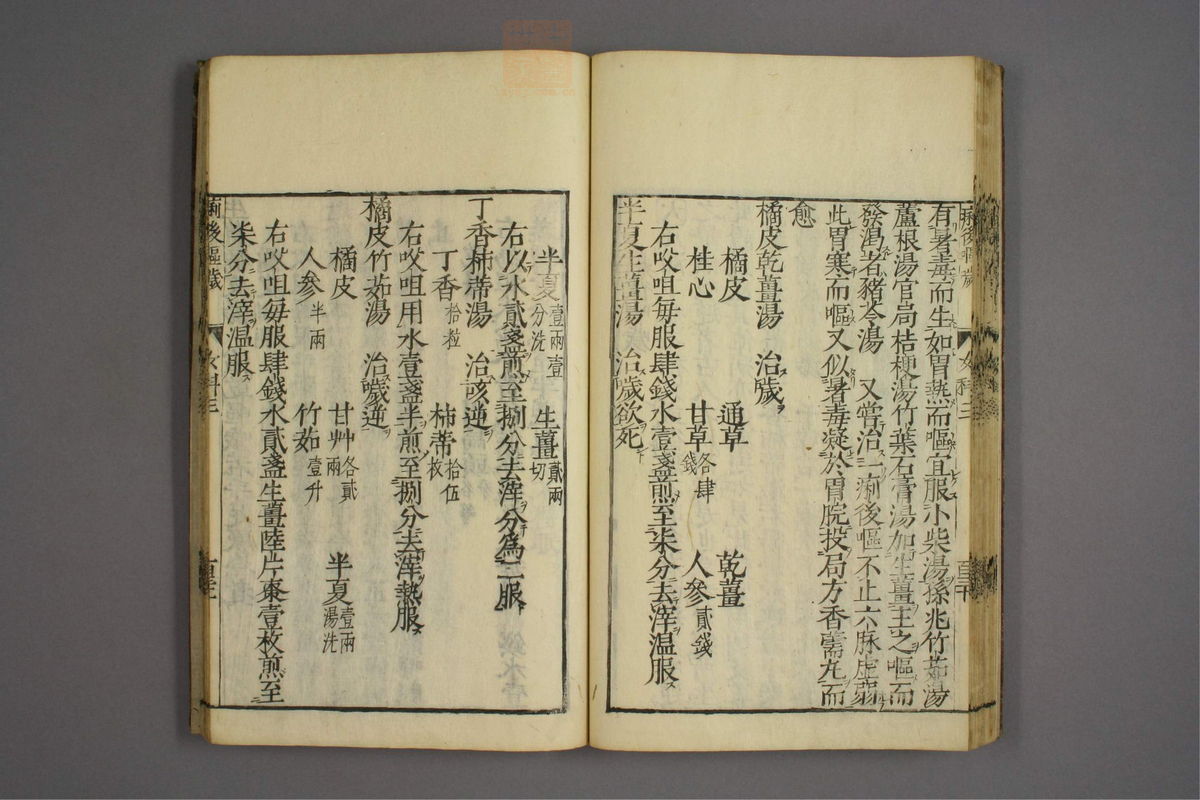 有暑毒而生如胃熱而嘔宜服小柴湯孫兆竹茹湯
蘆根湯官局桔梗湯竹葉石膏湯加生薑主之嘔而
發渴者豬苓湯 又嘗治一痢後嘔不止六脉虛弱
此胃寒而嘔又似暑毒凝於胃脘投局方香薷丸而
愈
橘皮乾薑湯 治噦
橘皮 通草 乾薑
桂心 甘草各肆錢 人參貳錢
右㕮咀每服肆錢水壹盞煎至柒分去滓温服
半夏生薑湯 治噦欲死
半夏壹兩壹分洗 生薑貳兩切
右以水貳盞煎至捌分去滓分為二服
丁香柿蒂湯 治咳逆
丁香拾粒 柿蒂拾伍枚
右㕮咀用水壹盞半煎至捌分去滓熱服
橘皮竹茹湯 治噦逆
橘皮 甘艸各貳兩 半夏壹兩湯洗
人參半兩 竹茹壹升
右㕮咀每服肆錢水貳盞生薑陸片棗壹枚煎至
柒分去滓温服
痢後嘔噦 女科三